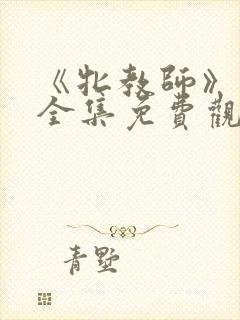 《牝教師》
全集免費觀
青墅